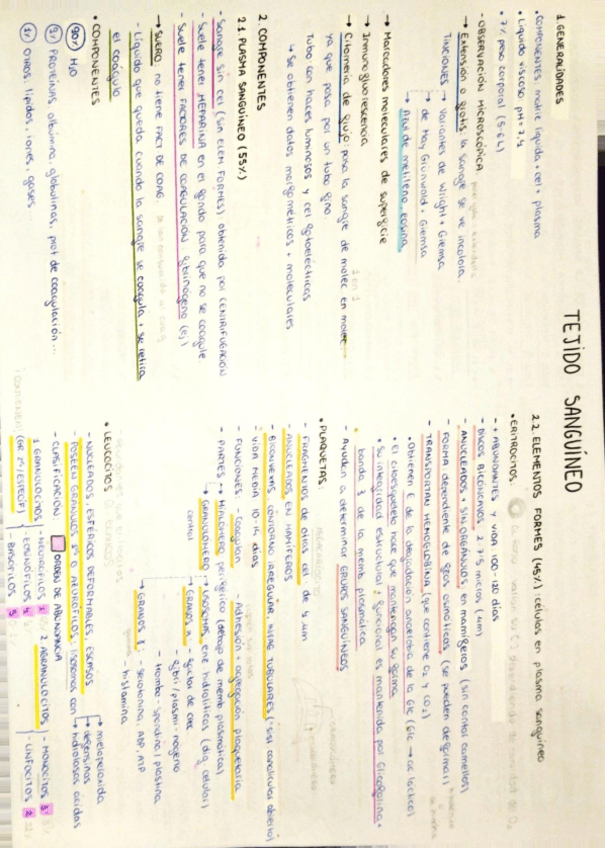 TEJIDO SANGUÍNEO
1. GENERALIDADES
• COMPONENTES: matriz líquida + cel + plasma
• Líquido viscoso pH = 7,4
• 7% peso corporal (5-6 L)
- OBSERVACIÓN MICROSCÓPICA
→ Extensión o frotis: la sangre se ve incolora.
TINCIONES → Variantes de Wright + Giemsa
→ de May Grünwald + Giemsa
→ Azul de metileno, eosina
→ Marcadores moleculares de superficie
→ Inmunofluorescencia
→ Citometría de flujo: pasa la sangre de molec en molec
1 en 1
ya que pasa por un tubo fino.
Tubo con haces luminosos y cel fotoeléctricas
↳ se obtienen datos morfométricos + moleculares
2. COMPONENTES
2.1. PLASMA SANGUÍNEO (55%)
- Sangre sin cel (sin ELEM FORMES) obtenida por CENTRIFUGACIÓN
- Suele tener HEPARINA en el fondo para que no se coagule
- Suele tener FACTORES DE COAGULACIÓN: fibrinógeno (ej)
→ SUERO: no tiene FACT DE COAG.
- Líquido que queda cuando la sangre se coagula + se retira
el coágulo
• COMPONENTES
90% H2O
9% Proteínas: albúmina, globulinas, prot de coagulación...
1% Otros: lípidos, iones, gases
2.2. ELEMENTOS FORMES (45%): células en plasma sanguíneo
• ERITROCITOS:
- + ABUNDANTES y VIDA 100-120 días
- DISCOS BICÓNCAVOS 2-7'5 micras (µm)
- ANUCLEADOS + SIN ORGÁNULOS en mamíferos (sin contar camellos)
- FORMA dependiente de grad osmóticas (se pueden deformar)
- TRANSPORTAN HEMOGLOBINA (que contiene O2 y CO2)
• Obtienen E de la degradación anaerobia de la Glc (Glc → ac láctico)
• El citoesqueleto hace que mantengan su forma
• Su integridad estructural + funcional es mantenida por Glicoforina +
banda 3 de la memb plasmática
- Ayudan a determinar GRUPOS SANGUÍNEOS
• PLAQUETAS:
- FRAGMENTOS de otras cel de 4 µm
ANUCLEADOS EN MAMÍFEROS
- BICONVEXAS, CONTORNO IRREGULAR, INVAG TUBULARES (*sist canalicular abierto)
VIDA MEDIA 10-14 días
- FUNCIONES: - Coagulan - Adhesión + agregación plaquetaria
- PARTES → HIALÓMERO: periférico (debajo de memb plasmática)
↳ GRANULÓMERO: central
→ LISOSOMAS: enz hidrolíticas (dig celular)
→ GRANOS α: - factor de crec
- fibri/plasmi-nógeno
- trombo-spondina/plastina
→ GRANOS δ: - serotonina, ADP, ATP
- histamina
• LEUCOCITOS
- NUCLEADOS, ESFÉRICOS, DEFORMABLES, ESCASOS
- POSEEN GRÁNULOS 1º O AZURÓFILOS: lisosomas con → mieloperoxidasa
→ defensinas
→ hidrolasas ácidas
- CLASIFICACIÓN ORDEN DE ABUNDANCIA
1. GRANULOCITOS
(GR 2º/ESPECIF)
- NEUTRÓFILOS 1
- EOSINÓFILOS 4
- BASÓFILOS 5
2. AGRANULOCITOS
- MONOCITOS 3
- LINFOCITOS 2